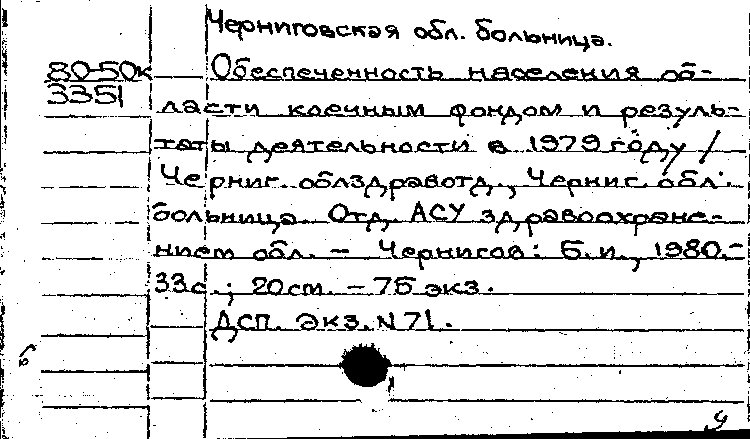 Черниговская обл. больница.
80-50к Обеспеченность населения об-
3351 ласти коечным фондом и резуль-
таты деятельности в 1979 году /
Черниг. облздравотд., Черниг. обл.
больница. Отд. АСУ здравоохране-
нием обл. – Чернигов: Б.и., 1980.–
33с.; 20см. – 75 экз.
ДСП. Экз. N 71.